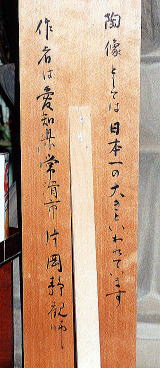 陶像としては日本一の大きさといわれています
作者は愛知県常滑市片岡静観師